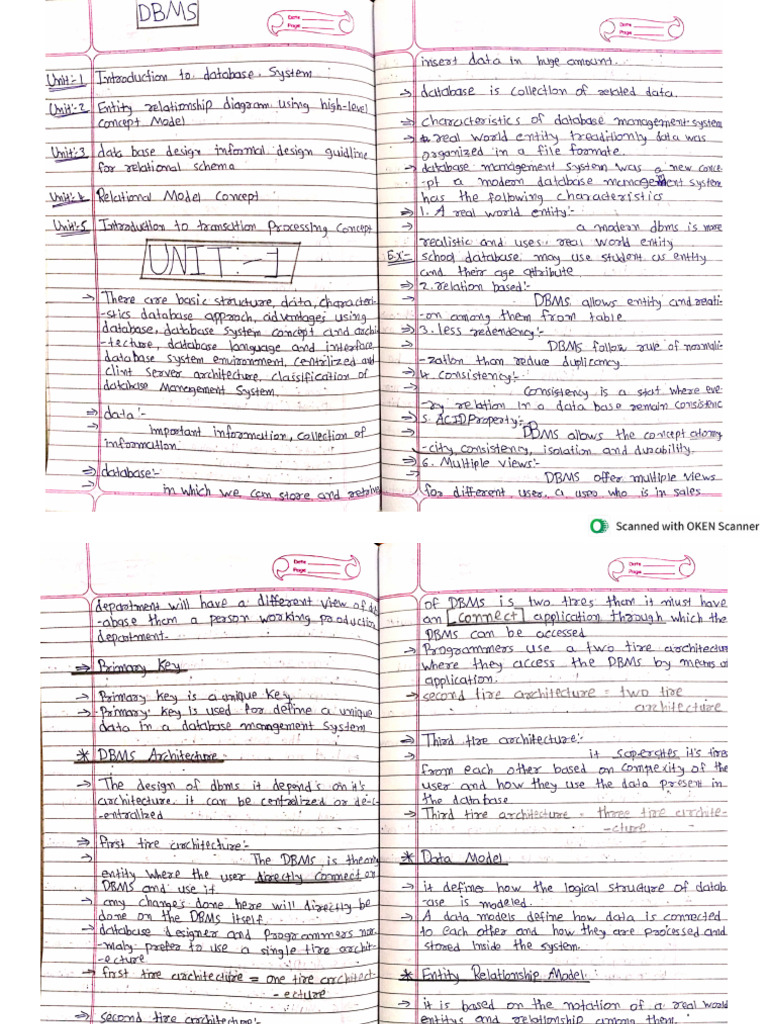 DBMS
Date
Page
Unit:-1 Introduction to database System
Unit:-2 Entity relationship diagram using high-level
concept Model
Unit:-3 data base design informal design guidline
for relational schema
Unit:-4 Relational Model concept
Unit:-5 Introduction to transution Processing concept
UNIT:-1
→ There are basic structure, data, characteri-
-stics database approach, advantages using
database, database system concept and archi-
-tecture, database language and interface
database system environment, centrilized and
clint server architecture, classification of
database Management System.
⇒ data:-
→ important information, collection of
information.
⇒ database:-
→ in which we can store and retrive
Date
Page
insert data in huge amount.
→ database is collection of related data.
⇒ characteristics of database management system
→ real world entity treaditionly data was
organized in a file formate.
→ database mamagement system was a new conce-
pt a modern database memagement system
has the following characteristics
⇒ 1. A real world entity:-
→ a modern dbms is more
realistic and uses real world entity
Ex:- school database may use student as entity
and their age attribute
⇒ 2. relation based:-
→ DBMS allows entity and relati-
-on among them from table.
⇒ 3. less redendency:-
→ DBMS follow rule of normali-
-zation than reduce duplicancy.
⇒ 4. consistency:-
→ consistency is a stat where eve-
-ry relation in a data base remain consistenc
⇒ 5. ACID Property:-
→ DBMS allows the concept atomy
-city, consistency, isolation and durability.
⇒ 6. Multiple views:-
→ DBMS offer multiple views
for different user, a user who is in sales
Scanned with OKEN Scanner
Date
Page
department will have a different view of dat
-abase than a person working production
department.
⇒ Primary Key
→ Primary key is a unique key
→ Primary key is used for define a unique
data in a database mangement system
* DBMS Architecture
→ The design of dbms it depend's on it's
architecture. it can be centralized or de-c-
-entralized
⇒ first tire architecture:-
→ The DBMS is the only
entity where the user directly connect on
DBMS and use it
→ any change's done here will directly be
done on the DBMS itself.
→ database designer and Programmers nor-
maly prefer to use a single tire archit-
-ecture
→ first tire architecture = one tire architect-
-ecture
⇒ second tire architecture:-
Date
Page
of DBMS is two tires then it must have
an connect application through which the
DBMS can be accessed
→ Programmers use a two tire architecture
where they access the DBMS by means of
application.
→ second tire architecture = two tire
architecture
⇒ Third tire architecture:-
→ it sapersites it's tires
from each other based on compexity of the
user and how they use the data present in
the database
→ Third tire architecture = three tire archite-
-cture
* Data Model
→ it defines how the logical structure of datab
-ase is modeled.
→ A data models define how data is connected
to each other and how they are processed and
stored inside the system.
* Entity Relationship Model:
→ it is based on the notation of a real world
entitys and relationship among them.